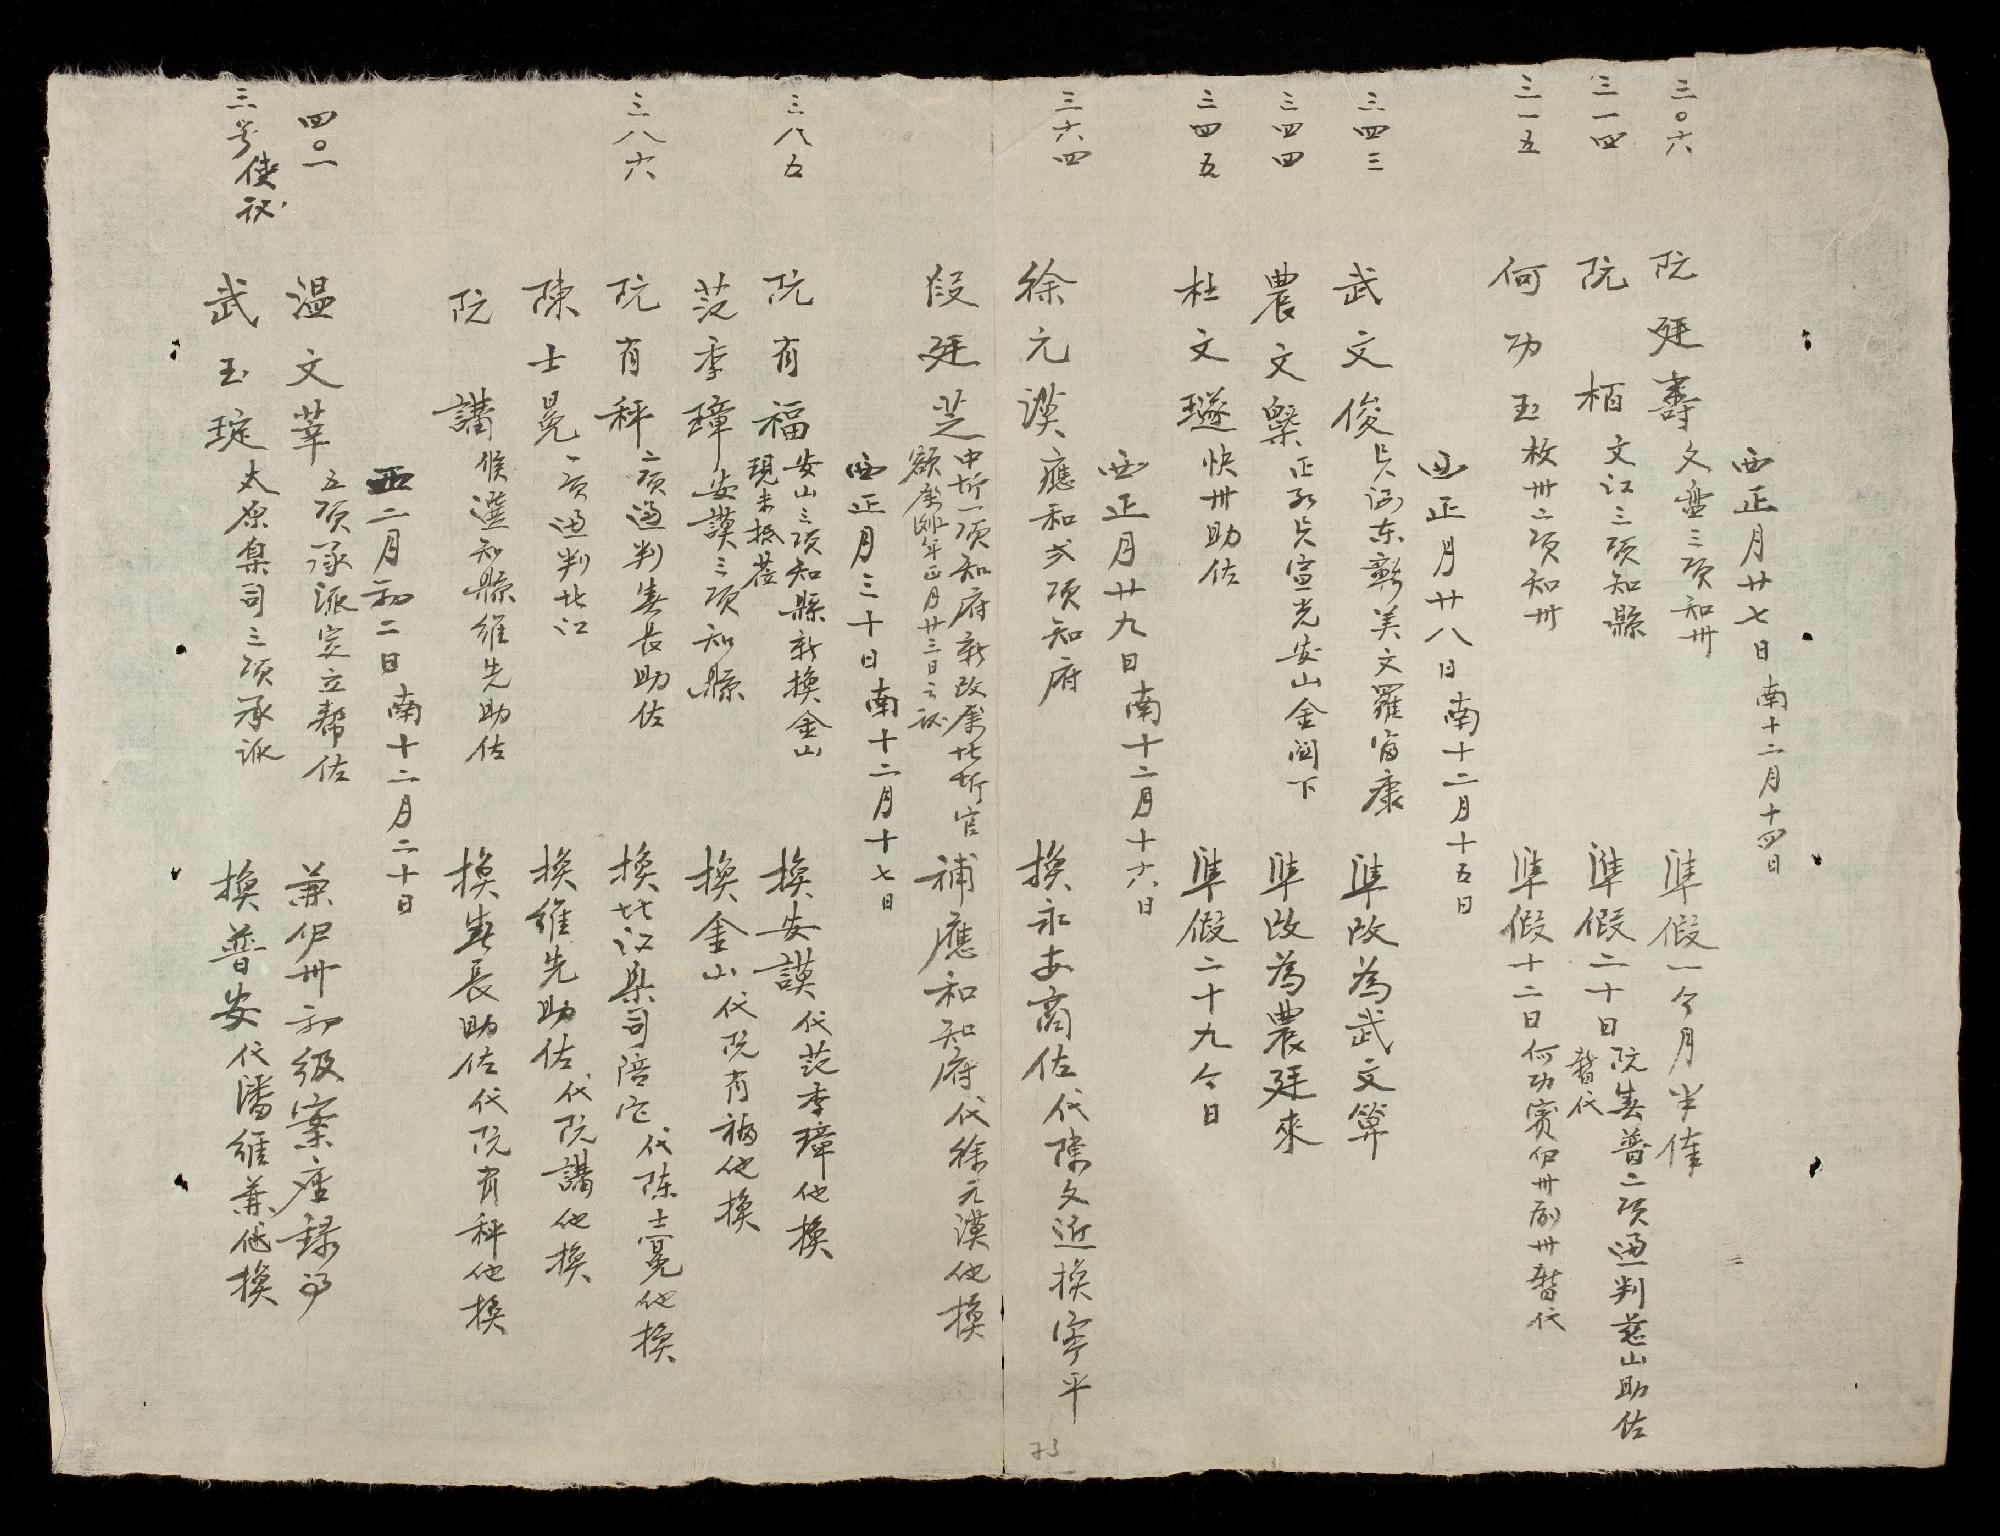 西正月廿七日南十二月十四日
三〇六 阮廷壽 文盤三項知州 準假一个月半俸
三一四 阮栢 文江三項知縣 準假二十日 阮春普二項通判慈山助佐
暫代
三一五 何功玉 枚州二項知州 準假十二日 何功賓伊州副州暫代
西正月廿八日南十二月十五日
三四三 武文俊 東彰美文羅海康 準改為武文算
三四四 農文槊 正宣光安山金関下 準改為農廷來
三四五 杜文璲 快州助佐 準假二十九个日
西正月廿九日南十二月十六日
三六四 徐元漠 應和弍項知府 換永安商佐代陳文近換寧平
段廷芝 中圻一項知府新改属北圻官
額 年正月廿三日之議 補應和知府代徐元漠他換
西正月三十日南十二月十七日
三八五 阮有福 安山三項知縣新換金山
現未抵莅 換安謨代范李璋他換
范李璋 安謨三項知縣 換金山代阮有福他換
三八六 阮有秤 二項通判春長助佐 換北江臬司陪 代陳士冕他換
陳士冕 一項通判北江 換維先助佐代阮講他換
阮講 候選知縣維先助佐 換春長助佐代阮有秤他換
西二月初二日南十二月二十日
四〇一 温文莘 五項承派定立幇佐 兼伊州初級案座録
三号使議 武玉琔 太原臬司三項承派 換普安代潘維兼他換
73